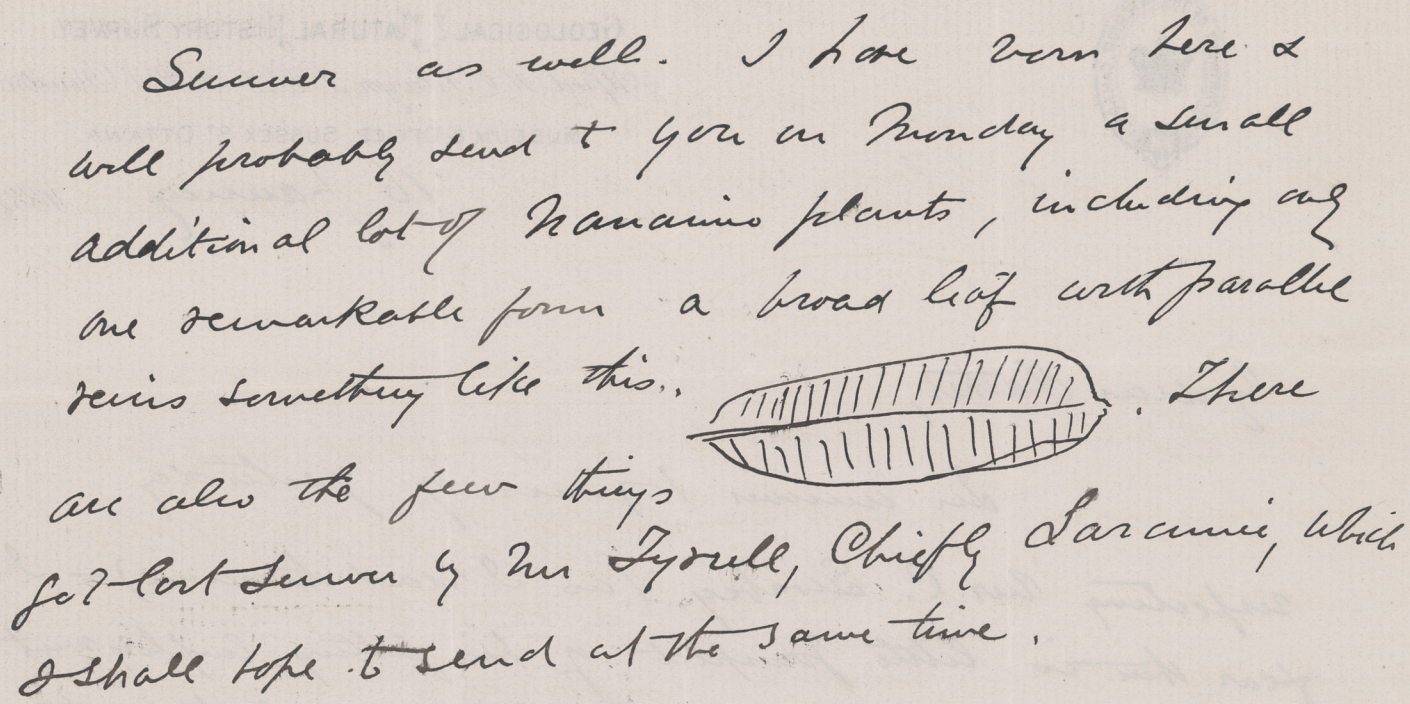 Summer as well. I have now here &
will probably send to you on Monday a small
additional lot of Nanaimo plants, including
one remarkable form a broad leaf with parallel
veins something like this. . There
are also the few things
got last Summer by Mr Tyrrell, Chiefly Laramie, which
I shall hope to send at the same time.